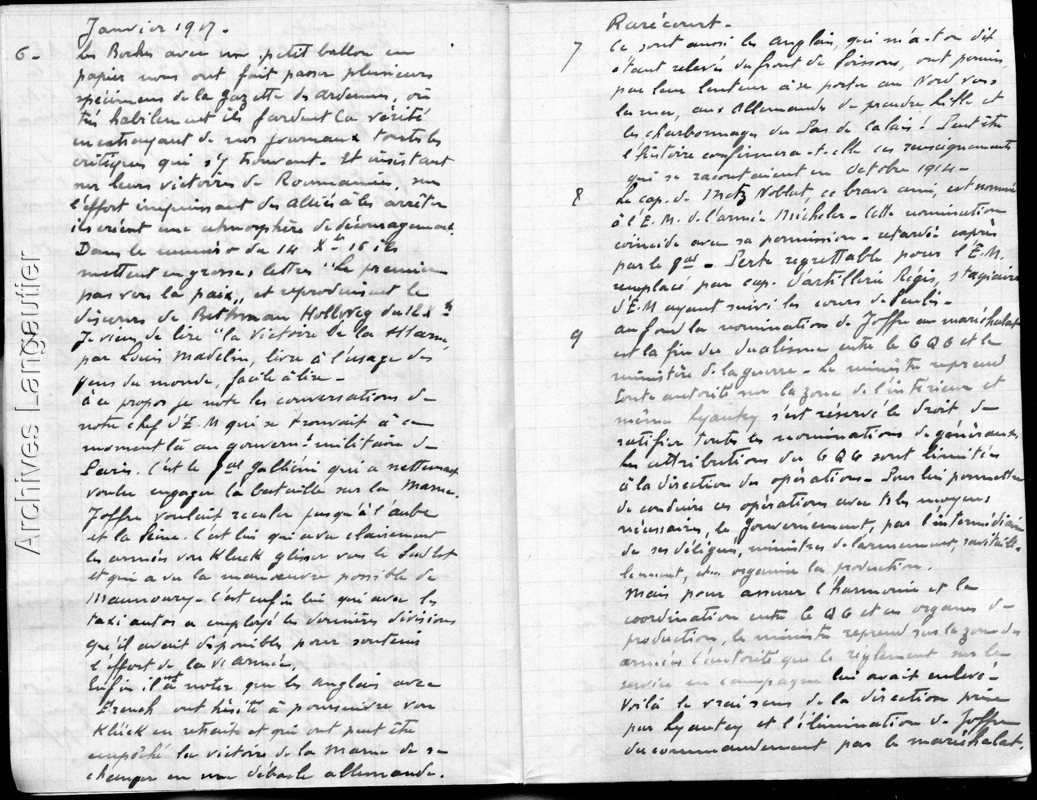 Janvier 1917.
6 - Les Boches avec un petit ballon en
papier nous ont fait passer plusieurs
spécimens de la Gazette des Ardennes, où
très habilement ils fardent la vérité
en extrayant de nos journaux toutes les
critiques qui s'y trouvent. Et insistant
sur leurs victoires de Roumanie, sur
l'effort impuissant des Alliés à les arrêter
ils créent une atmosphère de découragement.
Dans le numéro du 14 Xbre 16 ils
mettent en grosses lettres "Le premier
pas vers la paix" et reproduisent le
discours de Bethman Hollweg du 12 Xb
Je viens de lire "la Victoire de la Marne,
par Louis Madelin, livre à l'usage des
gens du monde, facile à lire -
à ce propos je note les conversations de
notre chef d'E.M qui se trouvait à ce
moment là au gouvernt militaire de
Paris. C'est le gal Galliéni qui a nettement
voulu engager la bataille sur la Marne.
Joffre voulait reculer jusqu'à l'Aube
et la Seine. C'est lui qui a vu clairement
les armées von Kluck glisser vers le Sud Est
et qui a vu la manoeuvre possible de
Maunoury - C'est enfin lui qui avec les
taxi autos a employé les dernières divisions
qu'il avait disponibles pour soutenir
l'effort de la VI armée,
Enfin il est à noter que les anglais avec
French ont hésité à poursuivre von
Klück en retraite et qui ont peut être
empêché la victoire de la Marne de se
changer en une débacle allemande.
Rarécourt -
7 Ce sont aussi les anglais, qui m'a-t-on dit
étant relevés du front de Soissons, ont permis,
par leur lenteur à se porter au Nord vers
la mer, aux Allemands de prendre Lille et
les charbonnages du Pas de Calais! Peut être
l'histoire confirmera-t-elle ces renseignements
qui se racontaient en Octobre 1914 -
8 Le cap. de Metz Noblat, ce brave ami, est nommé
à l'E.M. de l'armée Micheler - Cette nomination
coincide avec sa permission - retardée exprès
par le gal - Perte regrettable pour l'E.M.
remplacé par cap. d'artillerie Régis, stagiaire
d'E.M ayant suivi les cours de Senlis -
9 au fond la nomination de Joffre au maréchalat
est la fin du dualisme entre le GQG et le
ministère de la guerre - Le ministre reprend
toute autorité sur la zone de l'intérieur et
même Lyautey s'est réservé le droit de
ratifier toutes les nominations de généraux
Les attributions du GQG sont limitées
à la direction des opérations - Pour lui permettre
de conduire ces opérations avec ts les moyens
nécessaires, le Gouvernement, par l'intermédiaire
de ses délégués, ministres de l'armement, ravitail-
lement, etc.. organise la production.
Mais pour assurer l'harmonie et la
coordination entre le GQG et ces organes de
production, le ministre reprend sur la zone des
armées l'autorité que le règlement sur le
service en campagne lui avait enlevé -
Voilà le vrai sens de la direction prise
par Lyautey et l'élimination de Joffre
du commandement par le maréchalat.
Archives Langautier